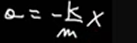 a = -k/m x